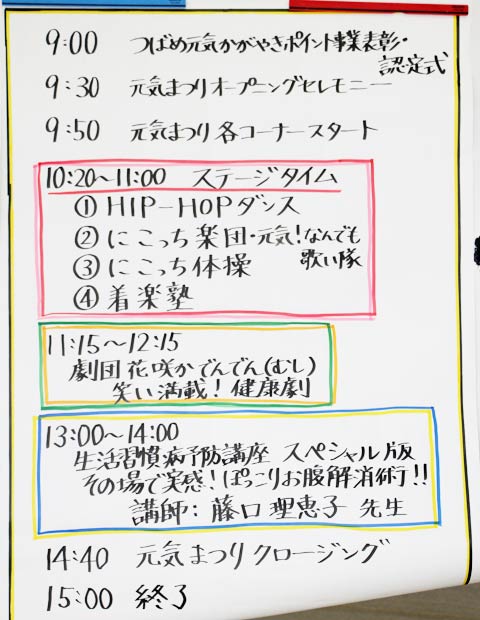 9:00 つばめ元気かがやきポイント事業表彰・
認定式
9:30 元気まつりオープニングセレモニー
9:50 元気まつり各コーナースタート
10:20〜11:00 ステージタイム
① HIP-HOPダンス
② にこっち楽団・元気!なんでも
歌い隊
③ にこっち体操
④ 着楽塾
11:15〜12:15
劇団 花咲かでんでん(むし)
笑い満載! 健康劇
13:00〜14:00
生活習慣病予防講座 スペシャル版
その場で実感!ぽっこりお腹解消術!!
講師: 藤口 理恵子 先生
14:40 元気まつりクロージング
15:00 終了